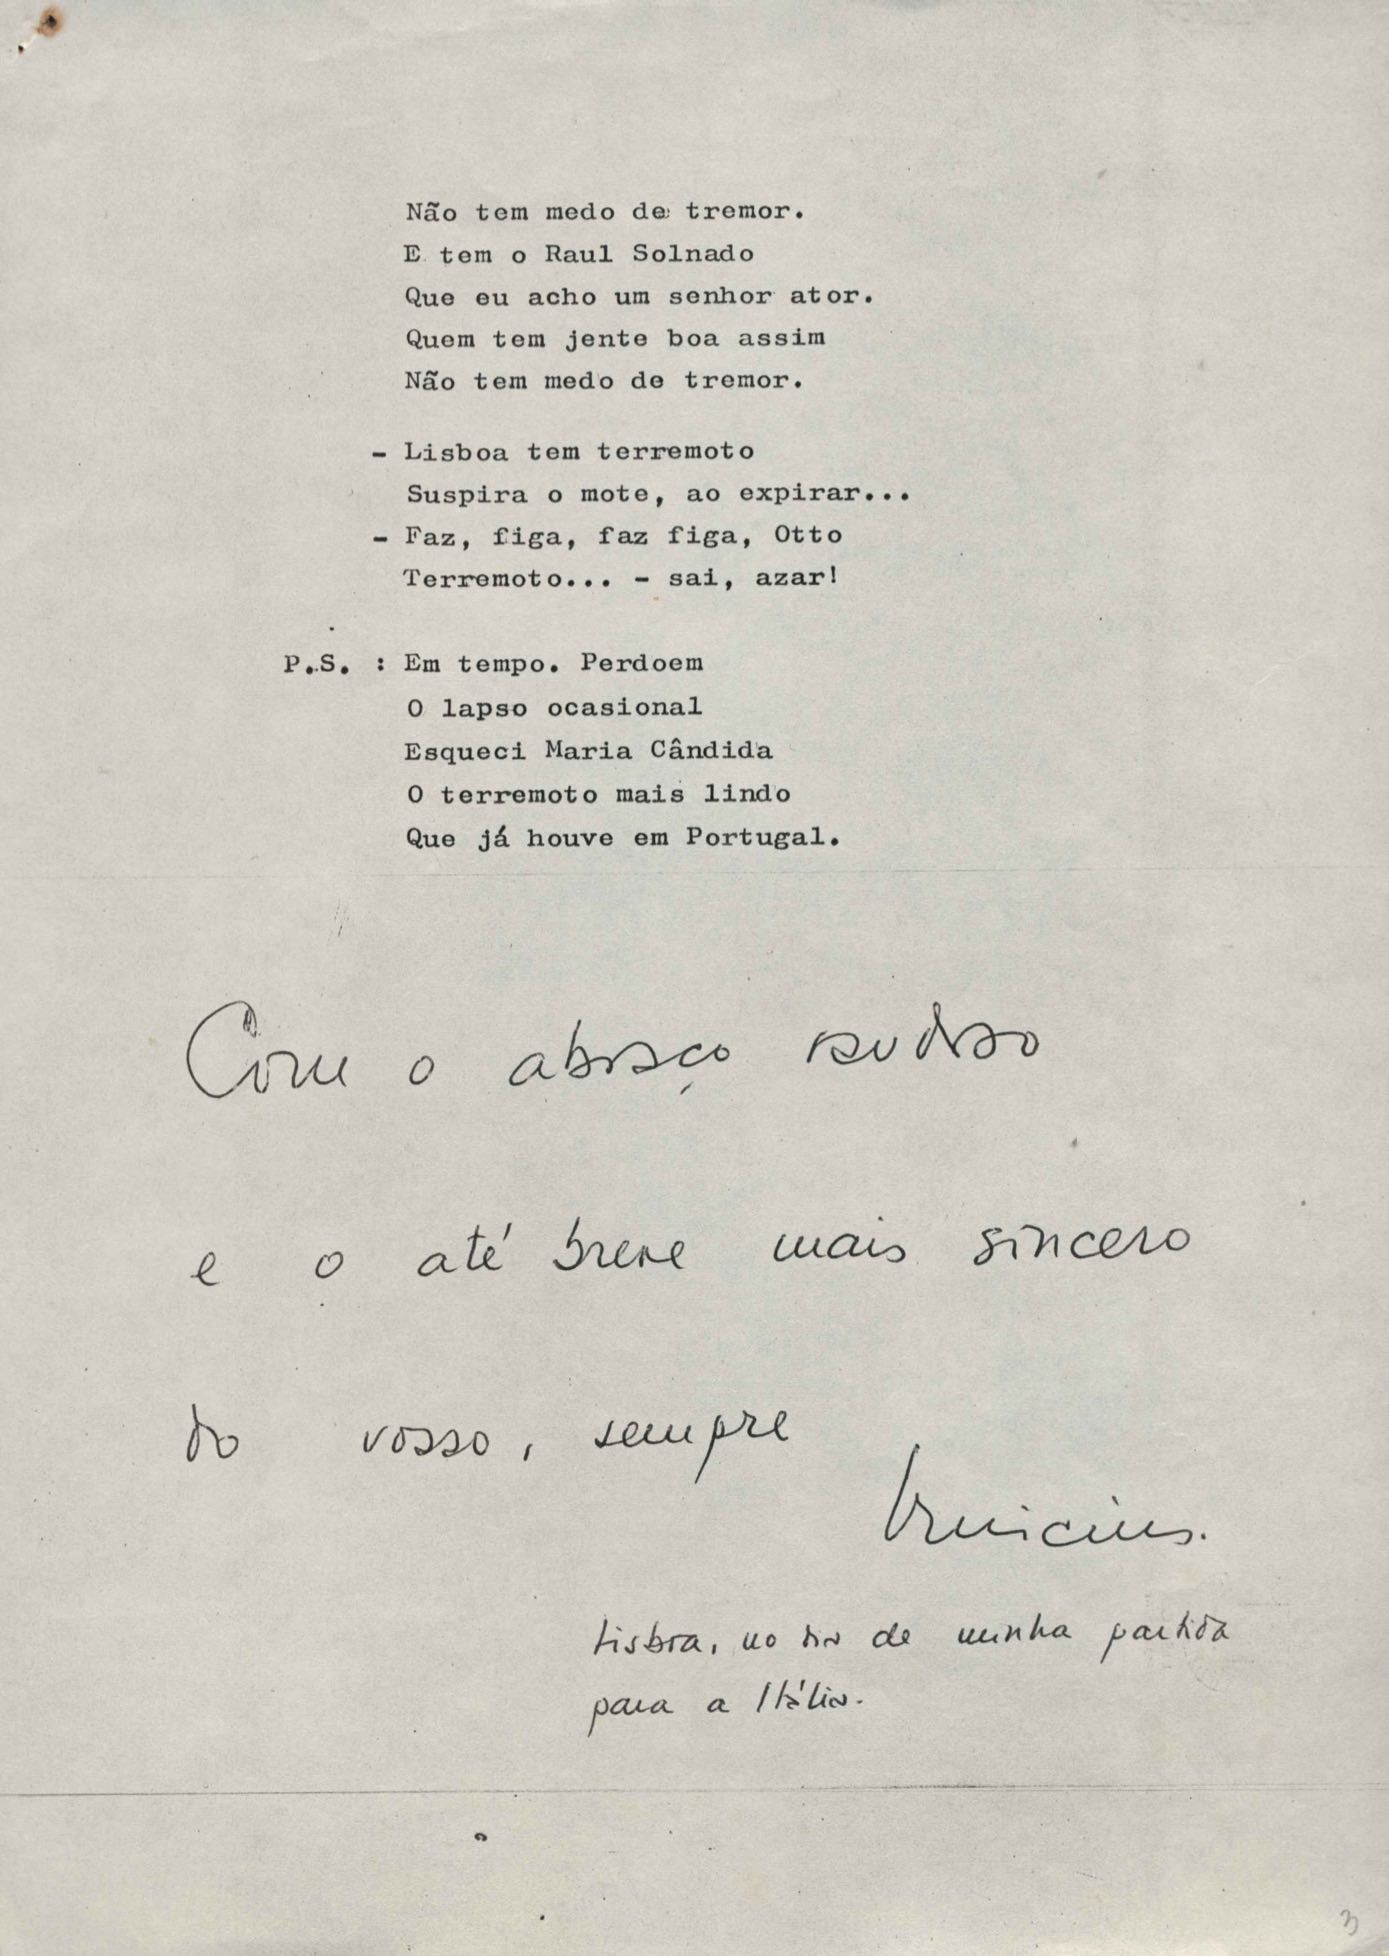 Não tem medo de tremor.
E tem o Raul Solnado
Que eu acho um senhor ator.
Quem tem jente boa assim
Não tem medo de tremor.
- Lisboa tem terremoto
Suspira o mote, ao expirar...
- Faz, figa, faz figa, Otto
Terremoto... - sai, azar!
P.S. : Em tempo. Perdoem
O lapso ocasional
Esqueci Maria Cândida
O terremoto mais lindo
Que já houve em Portugal.
Com o abraço saudoso
e o até breve mais sincero
do vosso, sempre
Vinicius.
Lisboa, no dia de minha partida
para a Itália.
3